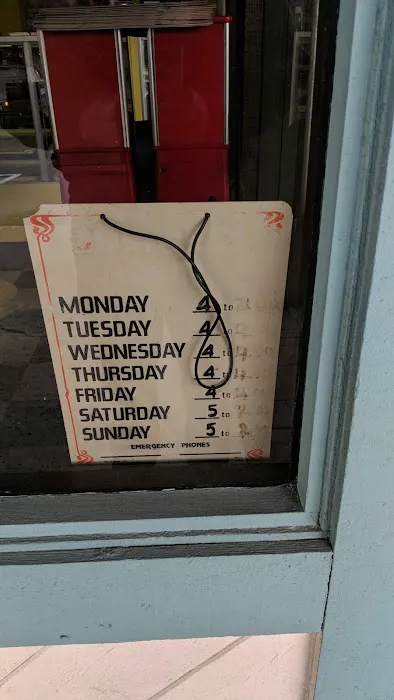 MONDAY 4 to
TUESDAY 4 to
WEDNESDAY 4 to
THURSDAY 4 to
FRIDAY 4 to
SATURDAY 5 to
SUNDAY 5 to
EMERGENCY PHONES